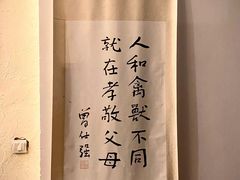 人和禽獸不同
就在孝敬父母
曾仕强